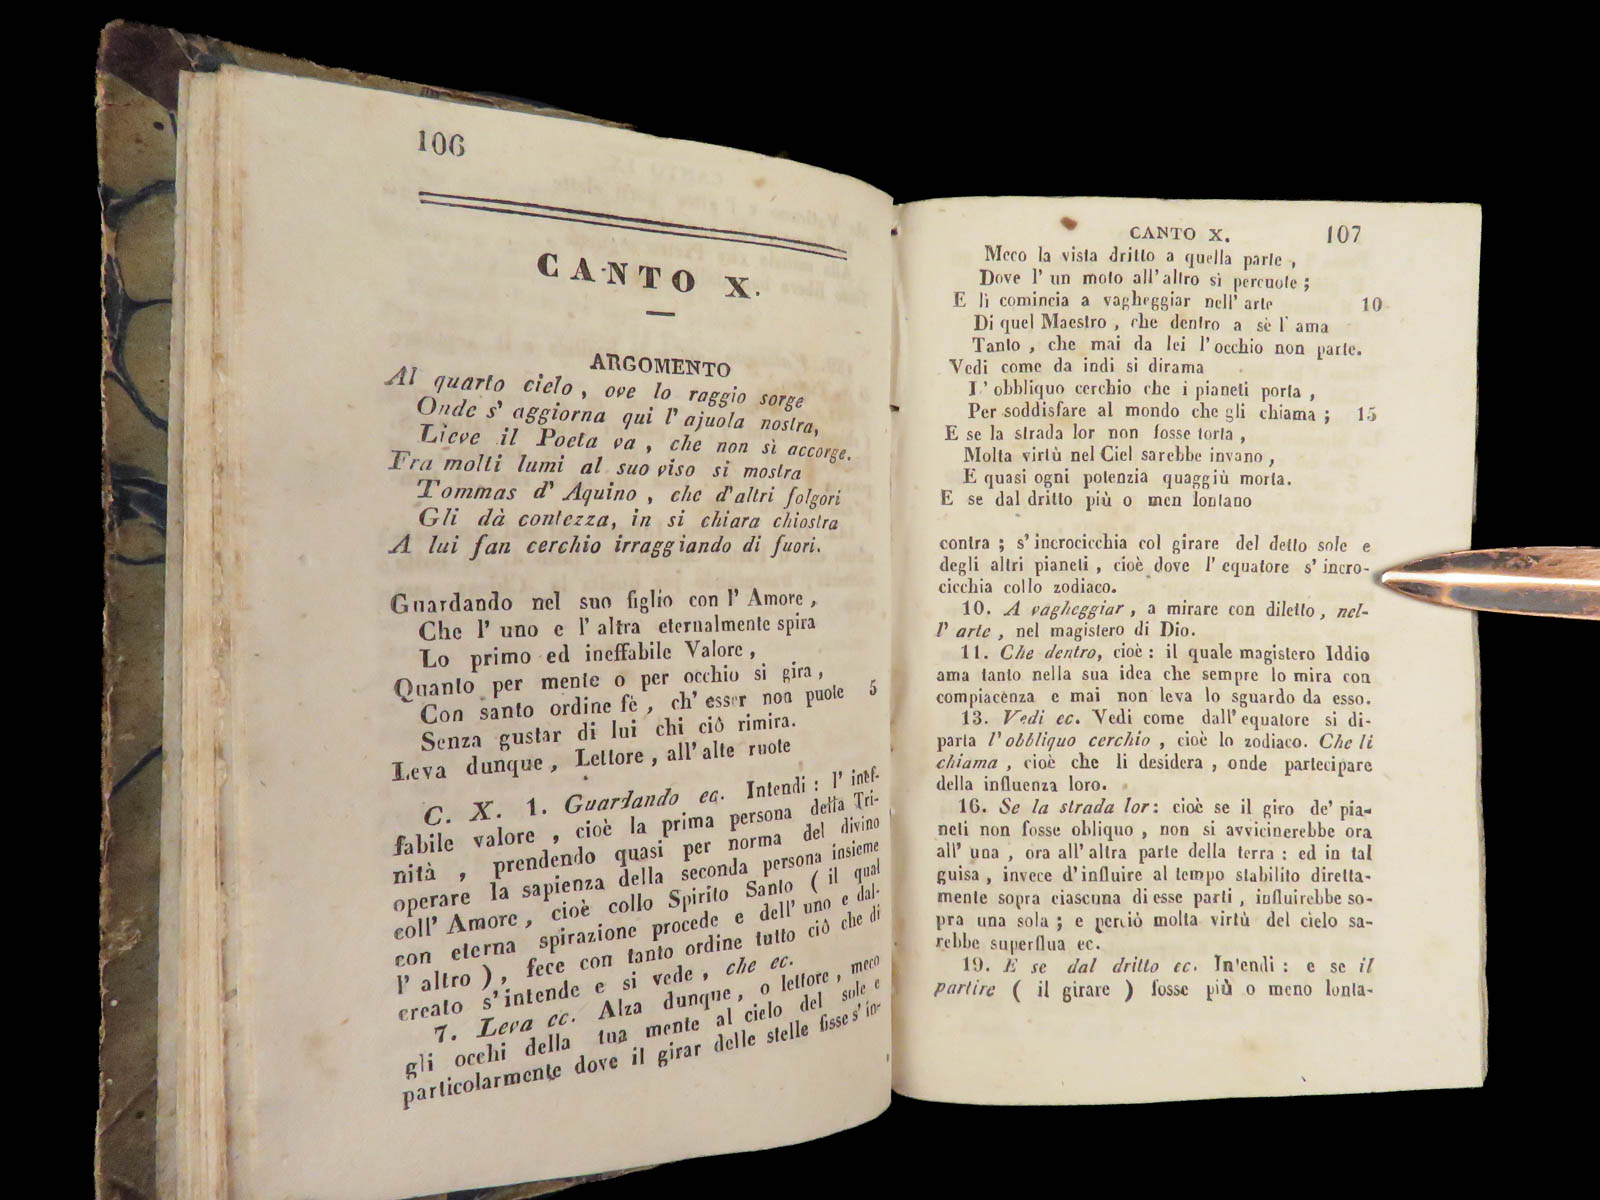 106
CANTO X.
ARGOMENTO
Al quarto cielo, ove lo raggio sorge
Onde s' aggiorna qui l' ajuola nostra,
Lieve il Poeta va, che non sì accorge.
Fra molti lumi al suo viso si mostra
Tommas d' Aquino, che d'altri folgori
Gli dà contezza, in si chiara chiostra
A lui fan cerchio irraggiando di fuori.
Guardando nel suo figlio con l' Amore,
Che l' uno e l' altra eternalmente spira
Lo primo ed ineffabile Valore,
Quanto per mente o per occhio si gira,
Con santo ordine fè, ch' esser non puote 5
Senza gustar di lui chi ciò rimira.
Leva dunque, Lettore, all' alte ruote
C. X. 1. Guardando ec. Intendi: l' inef-
fabile valore, cioè la prima persona della Tri-
nità, prendendo quasi per norma del divino
operare la sapienza della seconda persona insieme
coll' Amore, cioè collo Spirito Santo (il qual
con eterna spirazione procede e dell' uno e dal-
l' altro), fece con tanto ordine tutto ciò che di
creato s'intende e si vede, che ec.
7. Leva ec. Alza dunque, o lettore, meco
gli occhi della tua mente al cielo del sole e
particolarmente dove il girar delle stelle fisse s' in-
CANTO X. 107
Meco la vista dritto a quella parte,
Dove l' un moto all' altro si percuote;
E lì comincia a vagheggiar nell' arte 10
Di quel Maestro, che dentro a sè l' ama
Tanto, che mai da lei l'occhio non parte.
Vedi come da indi si dirama
L' obbliquo cerchio che i pianeti porta,
Per soddisfare al mondo che gli chiama; 15
E se la strada lor non fosse torta,
Molta virtù nel Ciel sarebbe invano,
E quasi ogni potenzia quaggiù morta.
E se dal dritto più o men lontano
contra; s' incrocicchia col girare del detto sole e
degli altri pianeti, cioè dove l' equatore s' incro-
cicchia collo zodiaco.
10. A vagheggiar, a mirare con diletto, nel-
l' arte, nel magistero di Dio.
11. Che dentro, cioè: il quale magistero Iddio
ama tanto nella sua idea che sempre lo mira con
compiacenza e mai non leva lo sguardo da esso.
13. Vedi ec. Vedi come dall' equatore si di-
parta l' obbliquo cerchio, cioè lo zodiaco. Che li
chiama, cioè che li desidera, onde partecipare
della influenza loro.
16. Se la strada lor: cioè se il giro de' pia-
neti non fosse obliquo, non si avvicinerebbe ora
all' una, ora all' altra parte della terra: ed in tal
guisa, invece d' influire al tempo stabilito diretta-
mente sopra ciascuna di esse parti, influirebbe so-
pra una sola; e perciò molta virtù del cielo sa-
rebbe superflua ec.
19. E se dal dritto ec. In'endi: e se il
partire (il girare) fosse più o meno lonta-